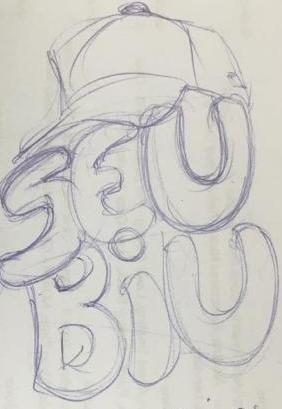 SEU
BiU